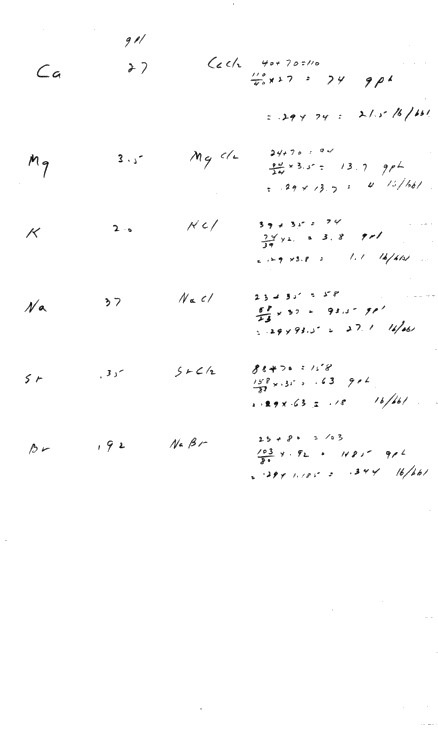 gpl
Ca 27 CaCl2 40+70=110
110/40 x 27 = 74 gpl
= .29 x 74 = 21.5 lb/bbl
Mg 3.5 Mg Cl2 24+70 = 94
94/24 x 3.5 = 13.7 gpl
= .29 x 13.7 = 4 lb/bbl
K 2.0 KCl 39 + 35 = 74
74/39 x 2. = 3.8 gpl
= .29 x 3.8 = 1.1 lb/bbl
Na 37 NaCl 23 + 35 = 58
58/23 x 37 = 93.5 gpl
= .29 x 93.5 = 27.1 lb/bbl
Sr .35 SrCl2 88+70 = 158
158/88 x .35 = .63 gpl
= .29 x .63 = .18 lb/bbl
Br .92 NaBr 23 + 80 = 103
103/80 x .92 = 1.185 gpl
= .29 x 1.185 = .344 lb/bbl